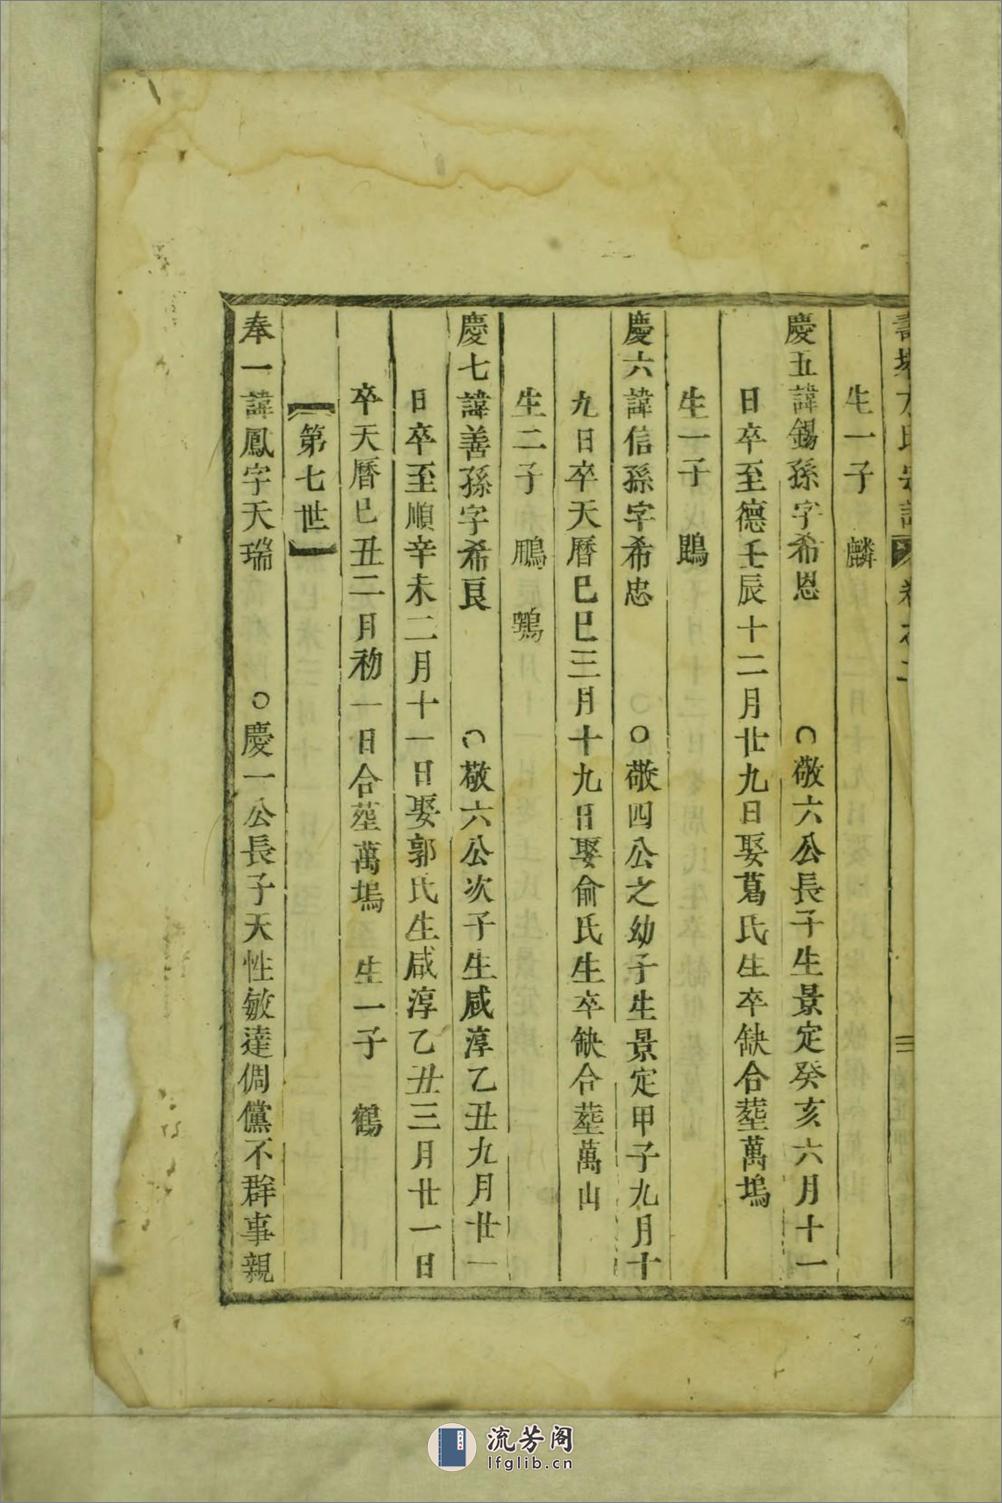 方氏宗譜 卷之二 三
生一子 麟
慶五諱錫孫字希恩 ○敬六公長子生景定癸亥六月十一
日卒至德壬辰十二月廿九日娶葛氏生卒缺合塟萬塢
生一子 鵾
慶六諱信孫字希忠 ○敬四公之幼子生景定甲子九月十
九日卒天曆己巳三月十九日娶俞氏生卒缺合塟萬山
生二子 鵬 鶚
慶七諱善孫字希良 ○敬六公次子生咸淳乙丑九月廿一
日卒至順辛未二月十一日娶郭氏生咸淳乙丑三月廿一日
卒天曆已丑二月初一日合塟萬塢 生一子 鶴
【第七世】
奉一諱鳳字天瑞 ○慶一公長子天性敏達倜儻不群事親
流芳阁
lfglib.cn